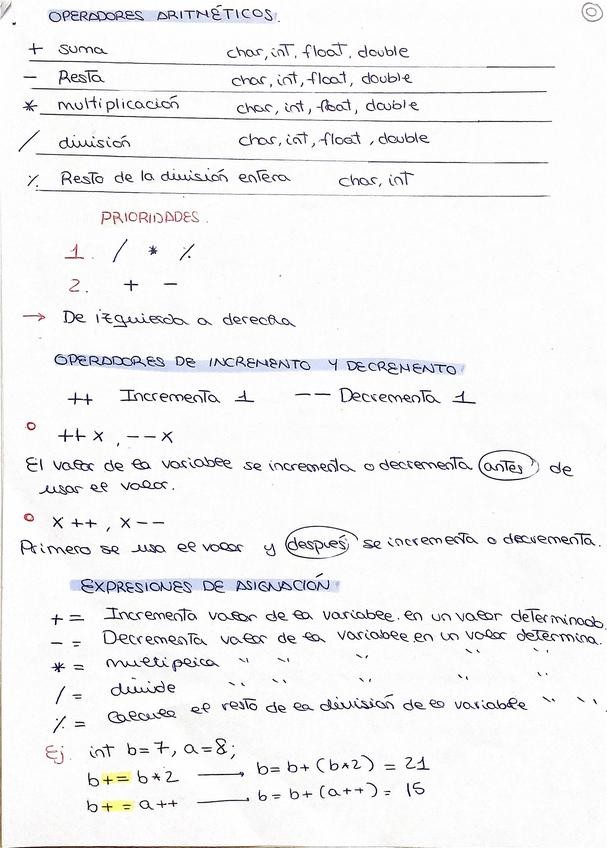 OPERADORES ARITMÉTICOS.
+ Suma char, int, float, double
- Resta char, int, float, double
* multiplicación char, int, float, double
/ división char, int, float, double
% Resto de la división entera char, int
PRIORIDADES.
1. / * %
2. + -
→ De izquierda a derecha
OPERADORES DE INCREMENTO Y DECREMENTO
++ Incrementa 1 -- Decrementa 1
++x, --x
El valor de la variable se incrementa o decrementa antes de
usar el valor.
x++, x--
Primero se usa el valor y después se incrementa o decrementa.
EXPRESIONES DE ASIGNACIÓN
+= Incrementa valor de la variable en un valor determinado.
-= Decrementa valor de la variable en un valor determina.
*= multiplica " " " " "
/= divide " " " " "
%= Calcula el resto de la división de la variable " " "
Ej. int b=7, a=8;
b+= b*2 → b= b+(b*2) = 21
b+= a++ → b= b+(a++) = 15